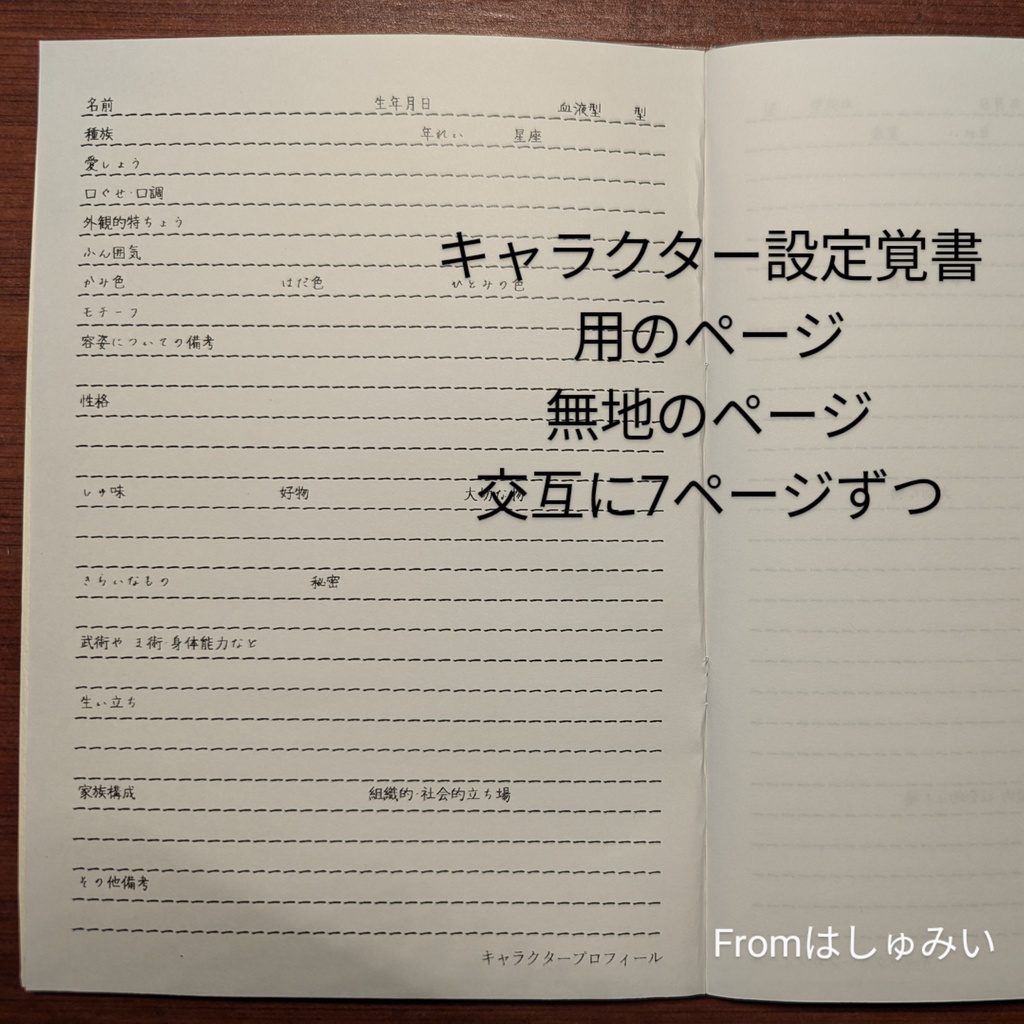 名前 生年月日 血液型 型
種族 年れい 星座
愛しょう
口ぐせ・口調
外観的特ちょう
ふん囲気
かみ色 はだ色 ひとみの色
モチーフ
容姿についての備考
性格
しゅ味 好物 大切な物
きらいなもの 秘密
武術や 身体能力など
生い立ち
家族構成 組織的・社会的立ち場
その他備考
キャラクタープロフィール
キャラクター設定覚書
用のページ
無地のページ
交互に7ページずつ
Fromはしゅみい